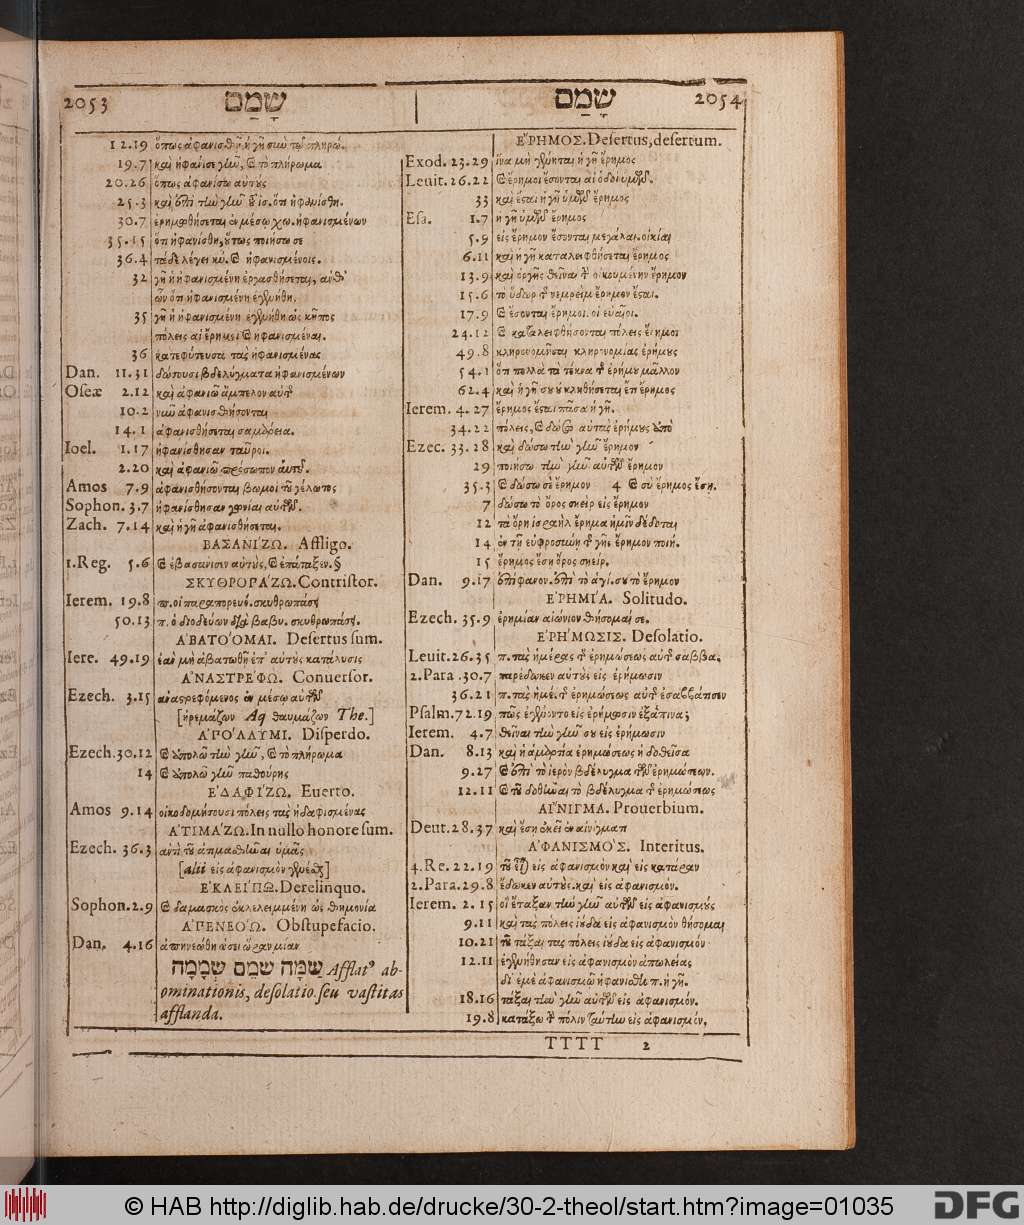 2053 שָׁמַם
12.19 ὅπως ἀφανισθῇ ἡ γῆ σὺν τῷ πληρώ.
19.7 καὶ ἠφάνισε γῆν, & τὸ πλήρωμα
20.26 ὅπως ἀφανίσω αὐτούς
25.3 καὶ ἐπὶ τὴν γῆν τοῦ ἰσ. ὅτι ἠφανίσθη.
30.7 ἐρημωθήσεται ἐν μέσῳ χω. ἠφανισμένων
35.15 ὅτι ἠφανίσθη, οὕτως ποιήσω σε
36.4 τάδε λέγει κύ. & ἠφανισμένοις.
32 γῆ ἡ ἠφανισμένη ἐργασθήσεται, ἀνθ'
ὧν ὅτι ἠφανισμένη ἐγενήθη.
35 γῆ ἡ ἠφανισμένη ἐγενήθη ὡς κῆπος
πόλεις αἱ ἔρημοι & ἠφανισμέναι.
36 κατεφύτευσα τὰς ἠφανισμένας
Dan. 11.31 δώσουσι βδελύγματα ἠφανισμένων
Oseæ 2.12 καὶ ἀφανιῶ ἄμπελον αὐτῆς
10.2 νῦν ἀφανισθήσονται
14.1 ἀφανισθήσεται σαμάρεια.
Ioel. 1.17 ἠφανίσθησαν ταῦροι.
2.20 καὶ ἀφανιῶ πρόσωπον αὐτοῦ.
Amos 7.9 ἀφανισθήσονται βωμοὶ τοῦ γέλωτος
Sophon. 3.7 ἠφανίσθησαν γωνίαι αὐτῶν.
Zach. 7.14 καὶ ἡ γῆ ἀφανισθήσεται.
ΒΑΣΑΝΙΖΩ. Affligo.
1.Reg. 5.6 & ἐβασάνισεν αὐτούς, & ἐπάταξεν. §
ΣΚΥΘΡΟΠΑ'ΖΩ. Contristor.
Ierem. 19.8 π. οἱ παραπορευό. σκυθρωπάσει
50.13 π. ὁ διοδεύων διὰ βαβυ. σκυθρωπάσει.
Α'ΒΑΤΟ'ΟΜΑΙ. Desertus sum.
Iere. 49.19 ἐὰν μὴ ἀβατωθῇ ἐπ' αὐτοὺς κατάλυσις
Α'ΝΑΣΤΡΕ'ΦΩ. Conuersor.
Ezech. 3.15 ἀναστρεφόμενος ἐν μέσῳ αὐτῶν
[ἠρεμάζων Aq θαυμάζων The.]
Α'ΠΟ'ΛΛΥΜΙ. Disperdo.
Ezech. 30.12 & ἀπολῶ τὴν γῆν, & τὸ πλήρωμα
14 & ἀπολῶ γῆν παθούρης
Ε'ΔΑΦΙ'ΖΩ. Euerto.
Amos 9.14 οἰκοδομήσουσι πόλεις τὰς ἠδαφισμένας
Α'ΤΙΜΑ'ΖΩ. In nullo honore sum.
Ezech. 36.3 ἀντὶ τοῦ ἀτιμασθῆναι ὑμᾶς
[alii εἰς ἀφανισμὸν γενέσθαι]
Ε'ΚΛΕΙ'ΠΩ. Derelinquo.
Sophon. 2.9 & δαμασκὸς ἐκλελειμμένη ὡς θημονία
Α'ΠΕΝΕΟ'Ω. Obstupefacio.
Dan. 4.16 ἀπηνεώθη ὡσεὶ ὥραν μίαν
שַׁמָּה שמם שְׁמָמָה Afflatꝰ ab-
ominationis, desolatio. seu vastitas
afflanda.
שָׁמַם 2054
Ε'ΡΗΜΟΣ. Desertus, desertum.
Exod. 23.29 ἵνα μὴ γένηται ἡ γῆ ἔρημος
Leuit. 26.22 & ἔρημοι ἔσονται αἱ ὁδοὶ ὑμῶν.
33 καὶ ἔσται ἡ γῆ ὑμῶν ἔρημος
Esa. 1.7 ἡ γῆ ὑμῶν ἔρημος
5.9 εἰς ἔρημον ἔσονται μεγάλαι. οἰκίαι
6.11 καὶ ἡ γῆ καταλειφθήσεται ἔρημος
13.9 καὶ ὀργῆς θεῖναι τὴν οἰκουμένην ἔρημον
15.6 τὸ ὕδωρ τῆς νεμρεὶμ ἔρημον ἔσται.
17.9 & ἔσονται ἔρημοι. οἱ εὐαῖοι.
24.12 & καταλειφθήσονται πόλεις ἔρημοι
49.8 κληρονομῆσαι κληρονομίας ἐρήμους
54.1 ὅτι πολλὰ τὰ τέκνα τῆς ἐρήμου μᾶλλον
62.4 καὶ ἡ γῆ σου οὐ κληθήσεται ἔτι ἔρημος
Ierem. 4.27 ἔρημος ἔσται πᾶσα ἡ γῆ.
34.22 πόλεις, & δώσω αὐτὰς ἐρήμους ἀπὸ
Ezec. 33.28 καὶ δώσω τὴν γῆν ἔρημον
29 ποιήσω τὴν γῆν αὐτῶν ἔρημον
35.3 & δώσω σε ἔρημον 4 & σὺ ἔρημος ἔσῃ.
7 δώσω τὸ ὄρος σηεὶρ εἰς ἔρημον
12 τὰ ὄρη ἰσραὴλ ἔρημα ἡμῖν δέδοται
14 ἐν τῇ εὐφροσύνῃ τῆς γῆς ἔρημον ποιή.
15 ἔρημος ἔσῃ ὄρος σηείρ.
Dan. 9.17 ἐπίφανον. ἐπὶ τὸ ἁγί. σου τὸ ἔρημον
Ε'ΡΗΜΙ'Α. Solitudo.
Ezech. 35.9 ἐρημίαν αἰώνιον θήσομαί σε.
Ε'ΡΗ'ΜΩΣΙΣ. Desolatio.
Leuit. 26.35 π. τὰς ἡμέρας τῆς ἐρημώσεως αὐτῆς σαββα.
2.Para. 30.7 παρέδωκεν αὐτοὺς εἰς ἐρήμωσιν
36.21 π. τὰς ἡμέ. τῆς ἐρημώσεως αὐτῆς ἐσαββάτισεν
Psalm. 72.19 πῶς ἐγένοντο εἰς ἐρήμωσιν ἐξάπινα;
Ierem. 4.7 θεῖναι τὴν γῆν σου εἰς ἐρήμωσιν
Dan. 8.13 καὶ ἡ ἁμαρτία ἐρημώσεως ἡ δοθεῖσα
9.27 & ἐπὶ τὸ ἱερὸν βδέλυγμα τῶν ἐρημώσεων.
12.11 & τοῦ δοθῆναι τὸ βδέλυγμα τῆς ἐρημώσεως
ΑΙ'ΝΙΓΜΑ. Prouerbium.
Deut. 28.37 καὶ ἔσῃ ἐκεῖ ἐν αἰνίγματι
Α'ΦΑΝΙΣΜΟ'Σ. Interitus.
4.Re. 22.19 τοῦ εἶναι εἰς ἀφανισμὸν καὶ εἰς κατάραν
2.Para. 29.8 ἔδωκεν αὐτούς. καὶ εἰς ἀφανισμόν.
Ierem. 2.15 οἳ ἔταξαν τὴν γῆν αὐτῶν εἰς ἀφανισμούς
9.11 καὶ τὰς πόλεις ἰούδα εἰς ἀφανισμὸν θήσομαι
10.21 τοῦ τάξαι τὰς πόλεις ἰούδα εἰς ἀφανισμόν
12.11 ἐγενήθησαν εἰς ἀφανισμὸν ἀπωλείας
δι' ἐμὲ ἀφανισμῷ ἠφανίσθη π. ἡ γῆ.
18.16 τάξαι τὴν γῆν αὐτῶν εἰς ἀφανισμόν.
19.8 κατάξω τὴν πόλιν ταύτην εἰς ἀφανισμόν,
TTTT 2
© HAB http://diglib.hab.de/drucke/30-2-theol/start.htm?image=01035
DFG